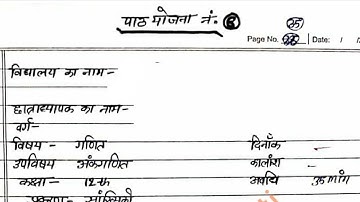 पाठ योजना नं. ③
25
Page No. Date: / /
विद्यालय का नाम-
छात्राध्यापक का नाम-
वर्ग-
विषय - गणित दिनाँक -
उपविषय अंकगणित कालांश -
कक्षा - 12-th अवधि - 35 मांग
प्रकरण- सांख्यिकी